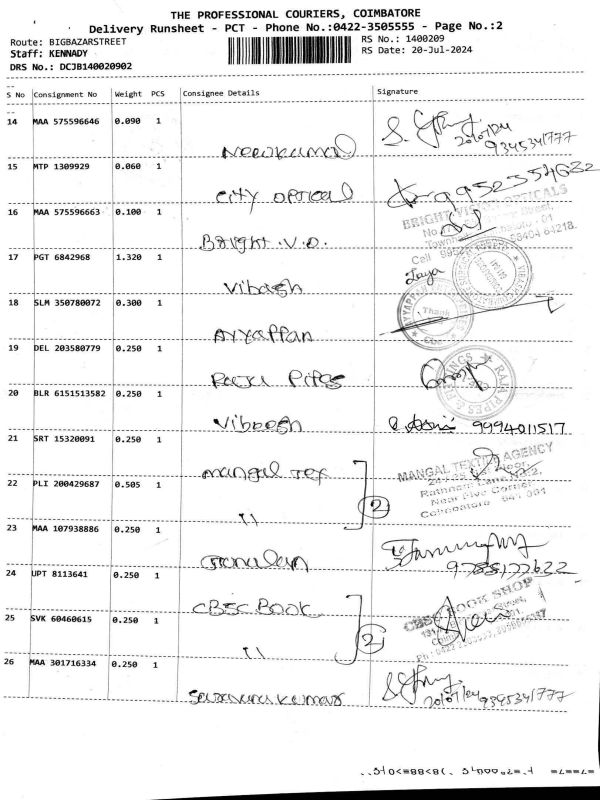 THE PROFESSIONAL COURIERS, COIMBATORE
Delivery Runsheet - PCT - Phone No.:0422-3505555 - Page No.:2
Route: BIGBAZARSTREET
RS No.: 1400209
Staff: KENNADY
RS Date: 20-Jul-2024
DRS No.: DCJB140020902
S No Consignment No Weight PCS Consignee Details Signature
14 MAA 575596646 0.090 1
20/07/24
9345341777
15 MTP 1309929 0.060 1
City optical
16 MAA 575596663 0.100 1
BRIGHT VISION OPTICALS
Bright. V.O.
17 PGT 6842968 1.320 1
Vibash
18 SLM 350780072 0.300 1
Thank
Ayyappan
19 DEL 203580779 0.250 1
Raja Pipes
20 BLR 6151513582 0.250 1
9994011517
21 SRT 15320091 0.250 1
Mangal Tex
MANGAL TEXTILE AGENCY
22 PLI 200429687 0.505 1
Near Five Corner
Coimbatore - 641 001
11
2
23 MAA 107938886 0.250 1
24 UPT 8113641 0.250 1
CBSC BOOK
CBSE BOOK SHOP
25 SVK 60460615 0.250 1
11
2
26 MAA 301716334 0.250 1
20/07/24 9345341777
Saravana kumar